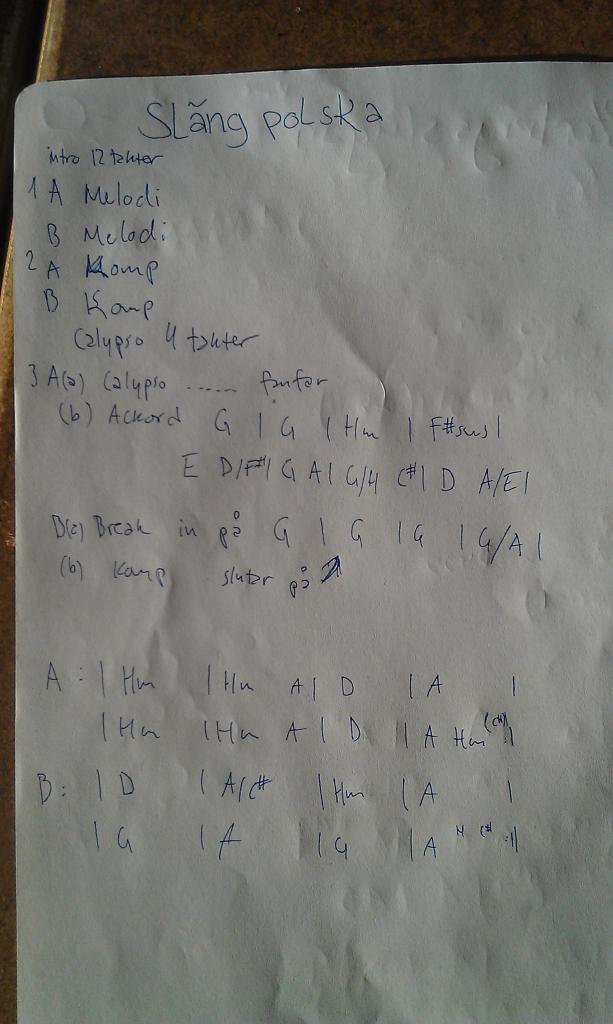 Slängpolska
intro 12 takter
1 A Melodi
B Melodi
2 A Komp
B Komp
Calypso 4 takter
3 A(a) Calypso ...... fanfar
(b) Ackord G | G | Hm | F#sus |
E D/F# | G A | G/H C# | D A/E |
B(a) Break in på G | G | G | G/A |
(b) Komp slutar på
A: | Hm | Hm A | D | A |
| Hm | Hm A | D | A Hm (C#) :|
B: | D | A/C# | Hm | A |
| G | A | G | A H C# :||